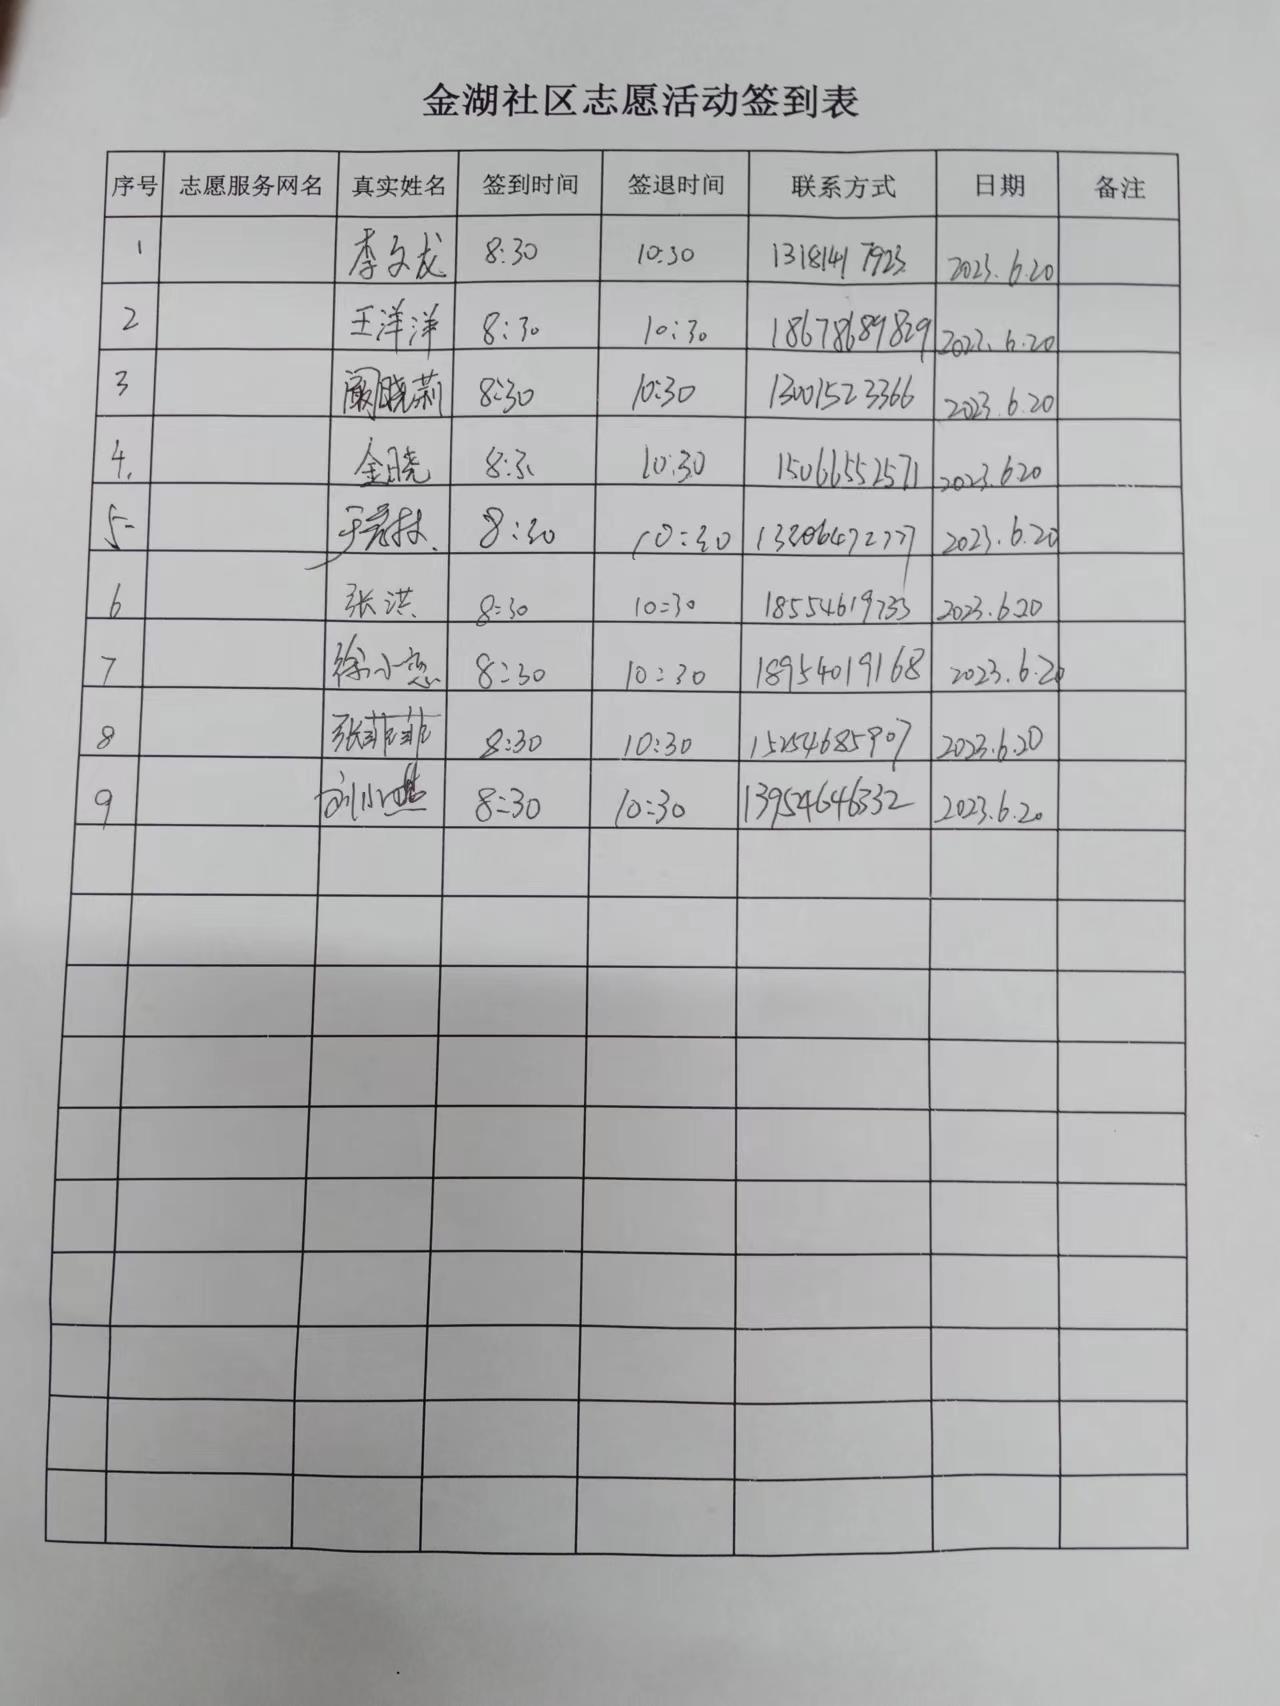 金湖社区志愿活动签到表
序号 志愿服务网名 真实姓名 签到时间 签退时间 联系方式 日期 备注
1 李文龙 8:30 10:30 13181417923 2023.6.20
2 王洋洋 8:30 10:30 18678689829 2023.6.20
3 阚晓莉 8:30 10:30 13001523366 2023.6.20
4. 金晓 8:30 10:30 15066552571 2023.6.20
5 8:30 10:30 2023.6.20
6 张洪 8:30 10:30 18554619733 2023.6.20
7 徐小 8:30 10:30 18954019168 2023.6.20
8 张菲菲 8:30 10:30 15254685907 2023.6.20
9 刘小 8:30 10:30 13954646332 2023.6.20